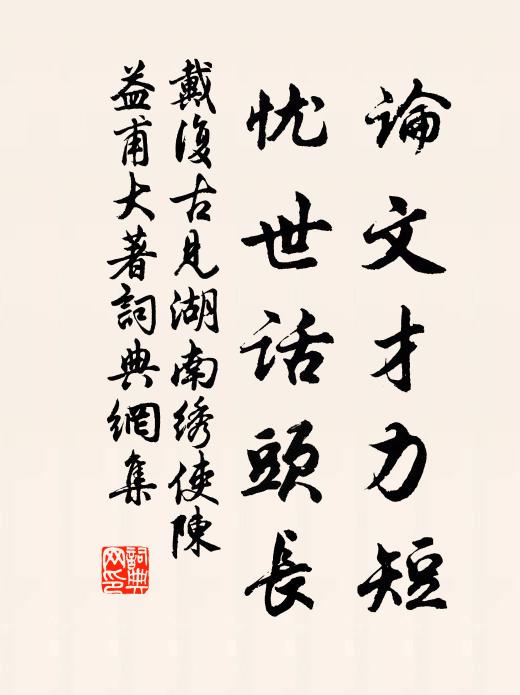 論文才力短
忧世话頭長
戴復古見湖南绣使陳
益甫大著詞典網集
詞典
网印